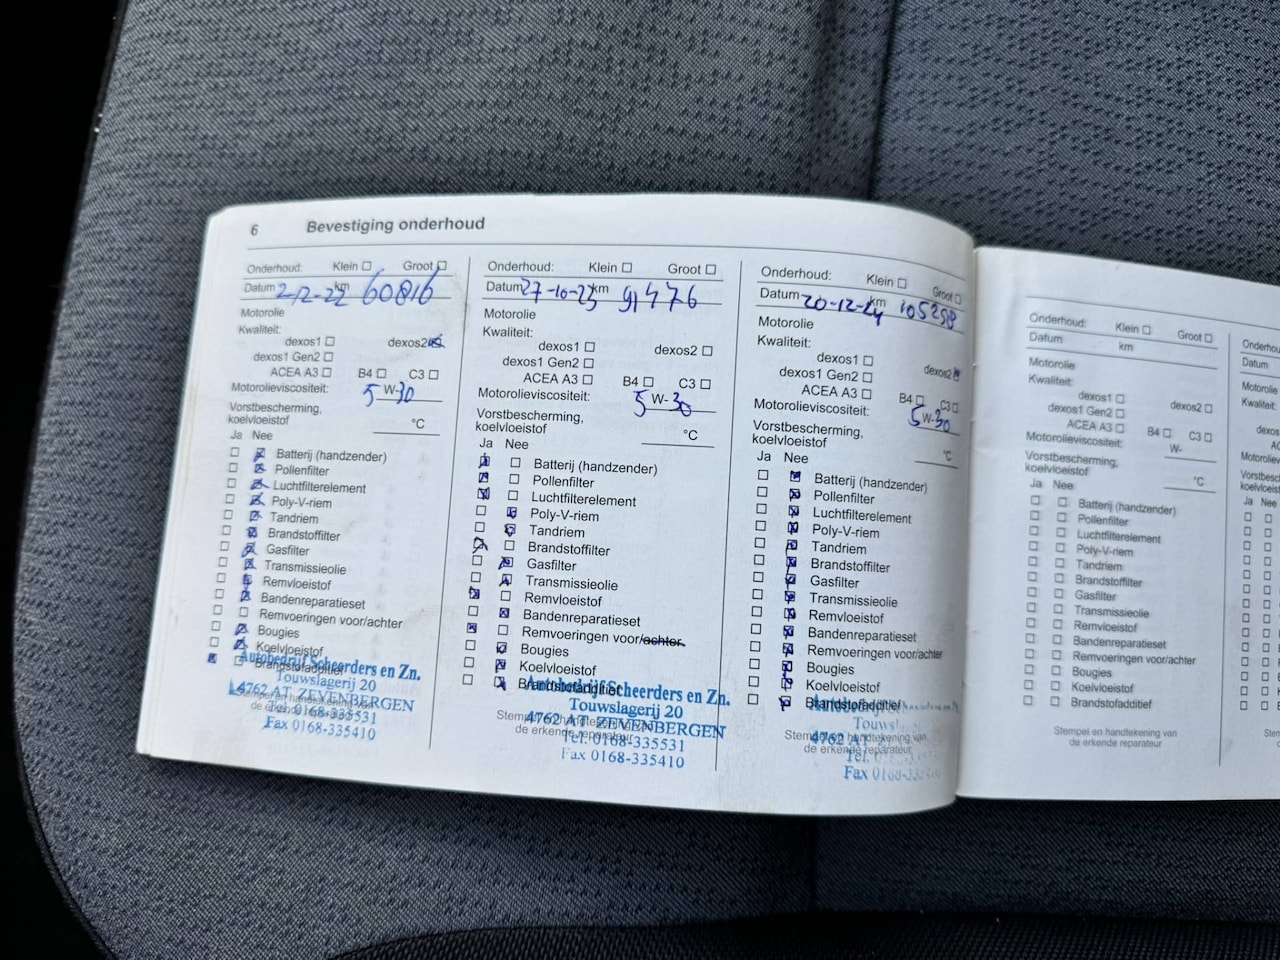 6 Bevestiging onderhoud
Onderhoud: Klein ☐ Groot ☐
Datum 2-12-22 km 60816
Motorolie
Kwaliteit:
dexos1 ☐ dexos2 ☒
dexos1 Gen2 ☐
ACEA A3 ☐ B4 ☐ C3 ☐
Motorolieviscositeit: 5 W-30
Vorstbescherming,
koelvloeistof °C
Ja Nee
Batterij (handzender)
Pollenfilter
Luchtfilterelement
Poly-V-riem
Tandriem
Brandstoffilter
Gasfilter
Transmissieolie
Remvloeistof
Bandenreparatieset
Remvoeringen voor/achter
Bougies
Koelvloeistof
Brandstofadditief
Autobedrijf Scheerders en Zn.
Touwslagerij 20
4762 AT ZEVENBERGEN
Tel. 0168-335531
Fax 0168-335410
Stempel en handtekening van
de erkende reparateur
Onderhoud: Klein ☐ Groot ☐
Datum 27-10-23 km 91476
Motorolie
Kwaliteit:
dexos1 ☐ dexos2 ☐
dexos1 Gen2 ☐
ACEA A3 ☐ B4 ☐ C3 ☐
Motorolieviscositeit: 5 W-30
Vorstbescherming,
koelvloeistof °C
Ja Nee
Batterij (handzender)
Pollenfilter
Luchtfilterelement
Poly-V-riem
Tandriem
Brandstoffilter
Gasfilter
Transmissieolie
Remvloeistof
Bandenreparatieset
Remvoeringen voor/achter
Bougies
Koelvloeistof
Brandstofadditief
Autobedrijf Scheerders en Zn.
Touwslagerij 20
4762 AT ZEVENBERGEN
Tel. 0168-335531
Fax 0168-335410
Stempel en handtekening van
de erkende reparateur
Onderhoud: Klein ☐ Groot ☐
Datum 20-12-24 km 105298
Motorolie
Kwaliteit:
dexos1 ☐ dexos2 ☒
dexos1 Gen2 ☐
ACEA A3 ☐ B4 ☐ C3 ☐
Motorolieviscositeit: 5 W-30
Vorstbescherming,
koelvloeistof °C
Ja Nee
Batterij (handzender)
Pollenfilter
Luchtfilterelement
Poly-V-riem
Tandriem
Brandstoffilter
Gasfilter
Transmissieolie
Remvloeistof
Bandenreparatieset
Remvoeringen voor/achter
Bougies
Koelvloeistof
Brandstofadditief
Autobedrijf
4762 AT
Tel.
Fax 0168-
Stempel en handtekening van
de erkende reparateur
Onderhoud: Klein ☐ Groot ☐
Datum km
Motorolie
Kwaliteit:
dexos1 ☐ dexos2 ☐
dexos1 Gen2 ☐
ACEA A3 ☐ B4 ☐ C3 ☐
Motorolieviscositeit: W-
Vorstbescherming,
koelvloeistof °C
Ja Nee
Batterij (handzender)
Pollenfilter
Luchtfilterelement
Poly-V-riem
Tandriem
Brandstoffilter
Gasfilter
Transmissieolie
Remvloeistof
Bandenreparatieset
Remvoeringen voor/achter
Bougies
Koelvloeistof
Brandstofadditief
Stempel en handtekening van
de erkende reparateur
Datum
Motorolie
Kwaliteit:
Ja Nee